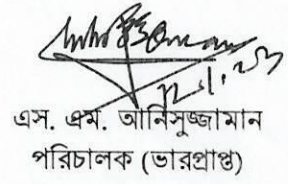 এস. এম. আনিসুজ্জামান
পরিচালক (ভারপ্রাপ্ত)